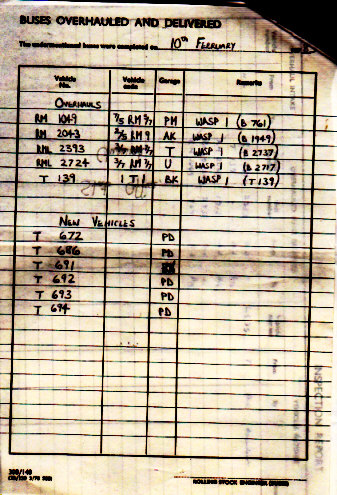 BUSES OVERHAULED AND DELIVERED
The undermentioned buses were completed on 10th February
Vehicle No. Vehicle code Garage Remarks
OVERHAULS
RM 1049 7/5 RM 7/1 PM WASP 1 (B 761)
RM 2043 2/5 RM 9 AK WASP 1 (B 1949)
RML 2393 T WASP 1 (B 2737)
RML 2724 3/7 RM 7/7 U WASP 1 (B 2717)
T 139 1 T 1 BK WASP 1 (T 139)
NEW VEHICLES
T 672 PD
T 686 PD
T 691
T 692 PD
T 693 PD
T 694 PD
INSPECTION REPORT
ROLLING STOCK ENGINEER